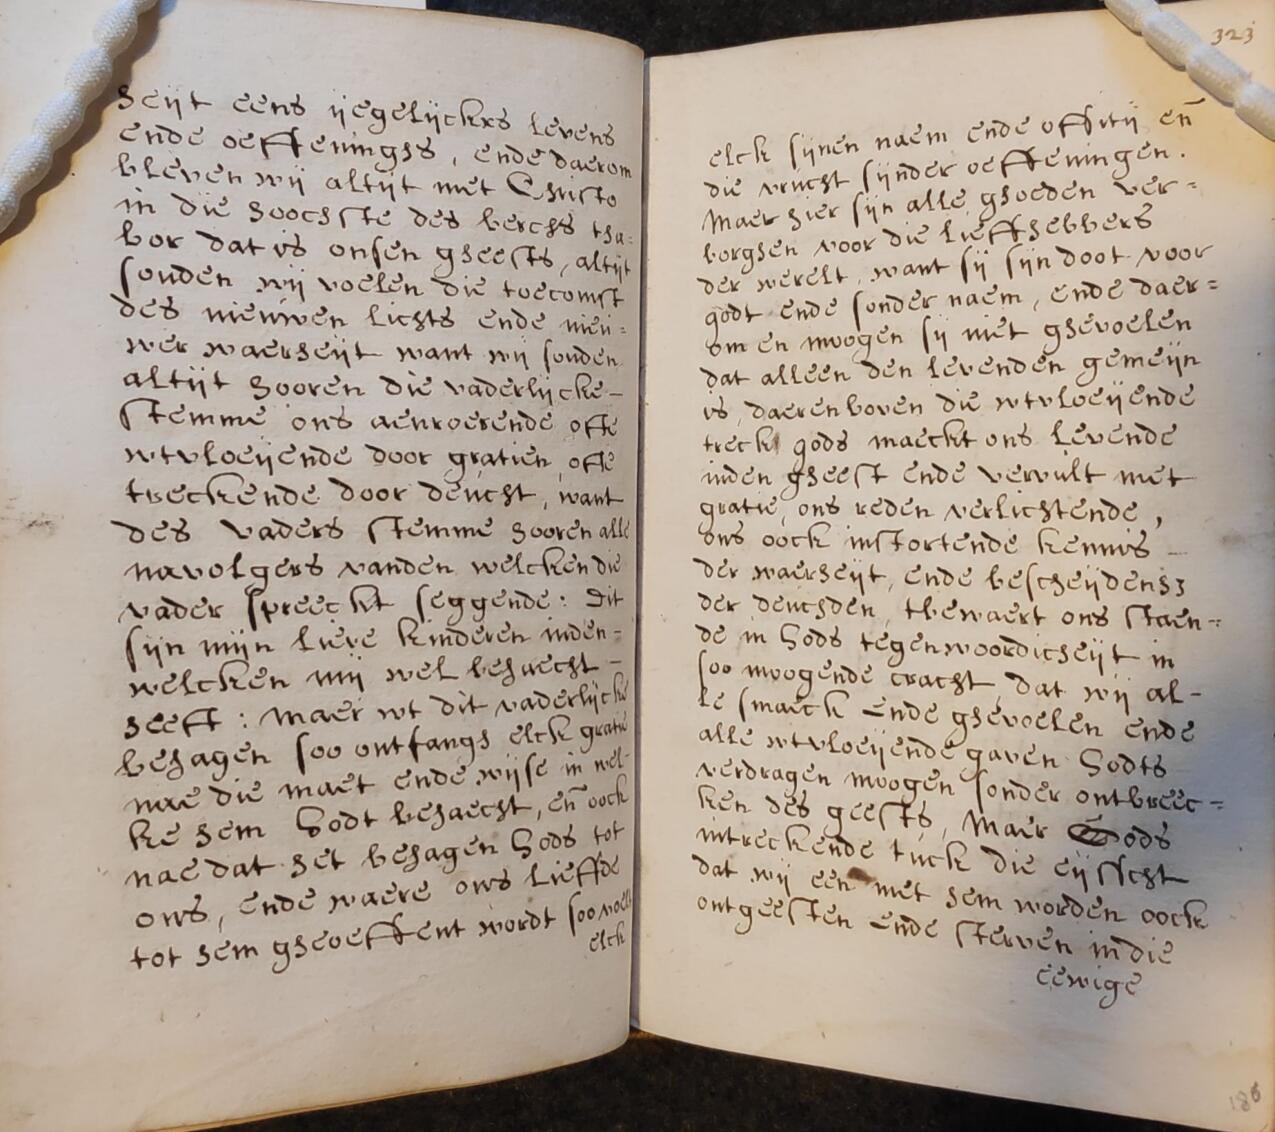 heijt eens ijegelijckxs levens
ende oeffeninghs, ende daerom
bleven wij altijt met Christo
in die hoochste des berchs tha=
bor dat is onsen gheests, altijt
souden wij voelen die toecomst
des nieuwen lichts ende nieu=
wer waerheijt want wij souden
altijt hooren die vaderlijcke-
stemme ons aenroerende ofte
wtvloeijende door gratien ofte
treckende door deucht, want
des vaders stemme hooren alle
navolgers vanden welcken die
vader spreeckt seggende: Dit
sijn mijn lieve kinderen inden=
welcken mij wel behaecht -
heeft: Maer wt dit vaderlijcke
behagen soo ontfangs elck gratie
nae die maet ende wijse in wel-
ke hem Godt behaecht, en̄ oock
nae dat het behagen Gods tot
ons, ende waere ons lieffde
tot hem gheoeffent wordt soo voelt
elck
323
elck sijnen naem ende offitij en̄
die vrucht sijnder oeffeningen.
Maer hier sijn alle ghoeden ver=
borghen voor die lieffhebbers
der werelt, want sij sijn doot voor
godt ende sonder naem, ende daer=
om en moogen sij niet ghevoelen
dat alleen den levenden gemeijn
is, daerenboven die wtvloeijende
treck gods maeckt ons levende
inden gheest ende vervult met
gratie, ons reden verlichtende,
ons oock instortende kennis -
der waerheijt, ende bescheijdenh3
der deuchden, tbewaert ons staen=
de in Gods tegenwoordicheijt in
soo moogende cracht, dat wij al-
le smaeck ende ghevoelen ende
alle wtvloeijende gaven Godts
verdragen moogen sonder ontbreec=
ken des geests, Maer Gods
intreckende tuck die eijsscht
dat wij een met hem worden oock
ontgeesten ende sterven in die
eewige
186